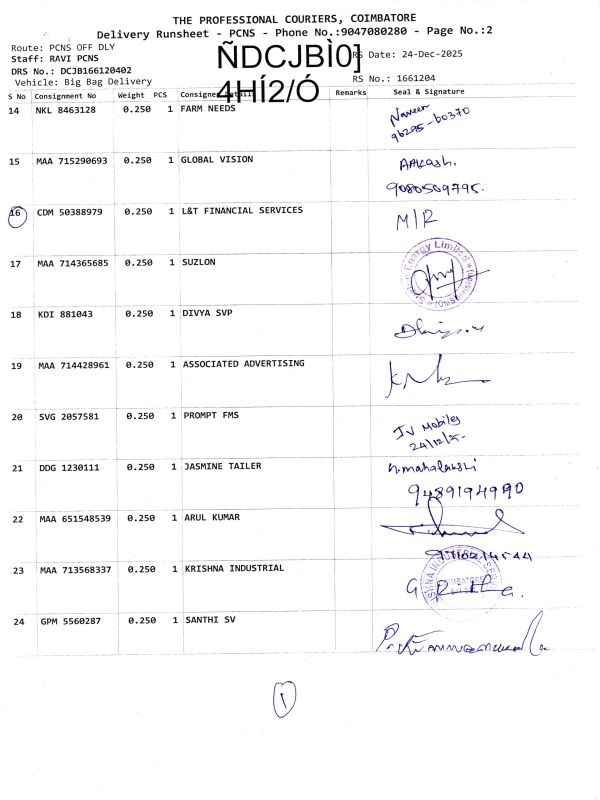 THE PROFESSIONAL COURIERS, COIMBATORE
Delivery Runsheet - PCNS - Phone No.:9047080280 - Page No.:2
Route: PCNS OFF DLY
Staff: RAVI PCNS
DRS No.: DCJB166120402
Vehicle: Big Bag Delivery
ÑDCJBÌ0]
4HÍ2/Ó
RS Date: 24-Dec-2025
RS No.: 1661204
S No Consignment No Weight PCS Consignee Detail Remarks Seal & Signature
14 NKL 8463128 0.250 1 FARM NEEDS Naveen
96295-60370
15 MAA 715290693 0.250 1 GLOBAL VISION AAkash.
9080509795.
16 CDM 50388979 0.250 1 L&T FINANCIAL SERVICES M/R
17 MAA 714365685 0.250 1 SUZLON Energy Limited
18 KDI 881043 0.250 1 DIVYA SVP
19 MAA 714428961 0.250 1 ASSOCIATED ADVERTISING
20 SVG 2057581 0.250 1 PROMPT FMS JJ Mobiles
24/12/25.
21 DDG 1230111 0.250 1 JASMINE TAILER
22 MAA 651548539 0.250 1 ARUL KUMAR
23 MAA 713568337 0.250 1 KRISHNA INDUSTRIAL
24 GPM 5560287 0.250 1 SANTHI SV
1